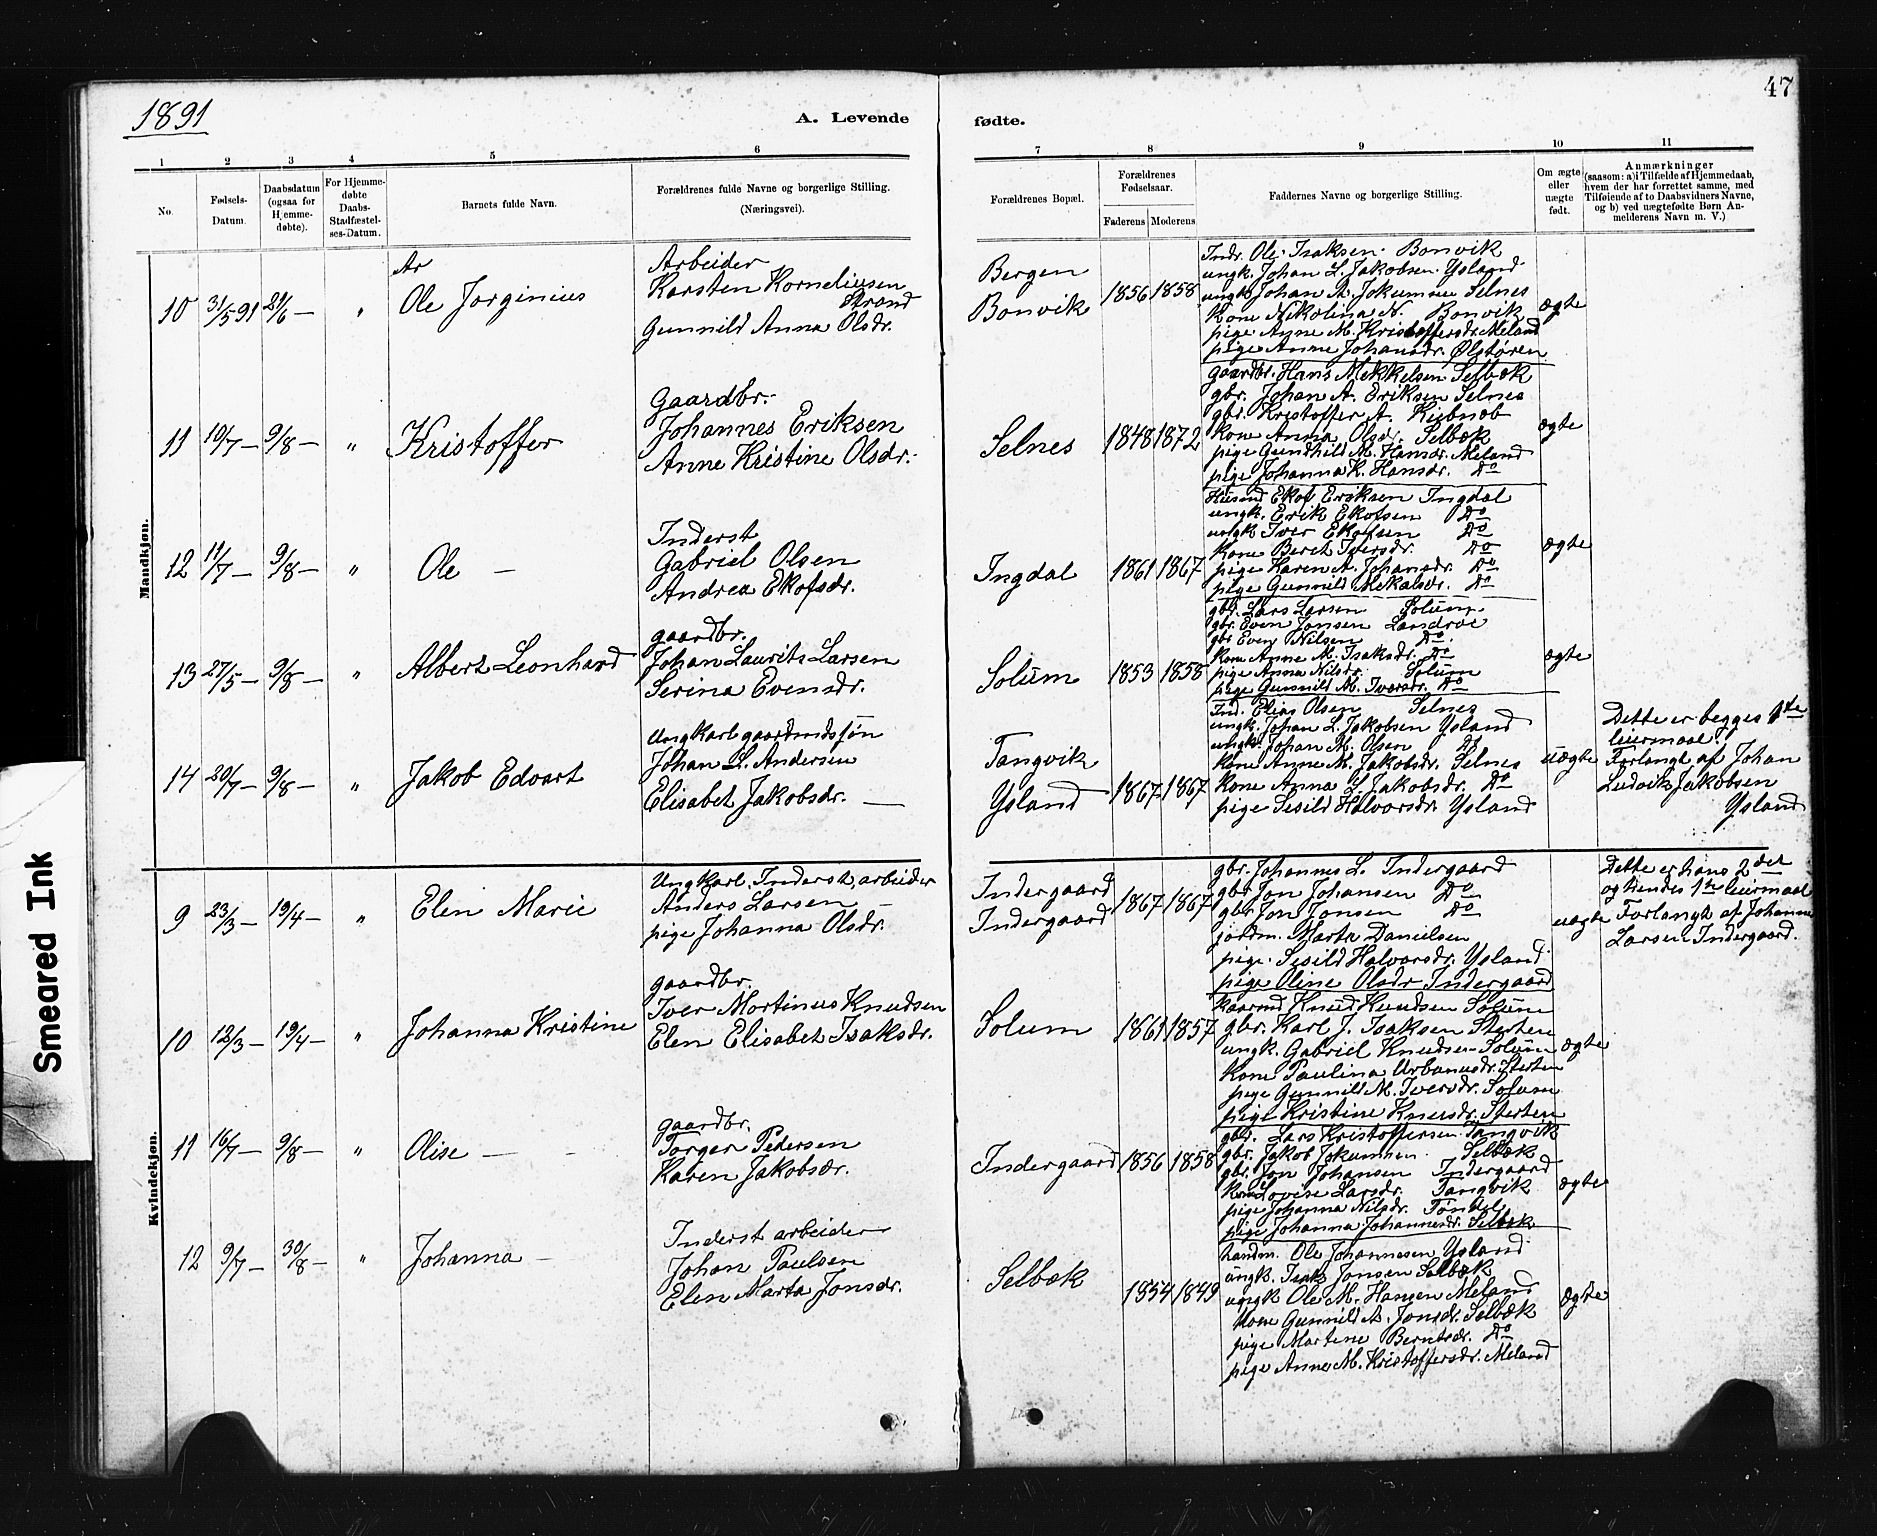 1891
A. Levende
fødte.
47
1
2
3
4
5
6
7
8
9
10
11
No.
Fødsels-
Datum.
Daabsdatum
(ogsaa for
Hjemme-
døbte).
For Hjemme-
døbte
Daabs-
Stadfæstel-
ses-Datum.
Barnets fulde Navn.
Forældrenes fulde Navne og borgerlige Stilling.
(Næringsvei).
Forældrenes Bopæl.
Forældrenes
Fødselsaar.
Faderens
Moderens
Faddernes Navne og borgerlige Stilling.
Om ægte
eller
uægte
født.
Anmærkninger
(saasom: a) i Tilfælde af Hjemmedaab,
hvem der har forrettet samme, med
Tilføiende af to Daabsvidners Navne,
og b) ved uægtefødte Børn An-
melderens Navn m. V.)
Mandkjøn.
10 31/5 91 21/6 — "
Ole Jorginius
Arbeider
Karsten Korneliusen
Strand
Gunnild Anna Olsdr.
Bergen
Bonvik
1856 1858
Indr. Ole Isaksen Bonvik
ungk. Johan L. Jakobsen Ysland
ungk. Johan A. Jokumsen Selnes
Kone Nikolina N. Bonvik
pige Anne M. Kristoffersdr. Meland
pige Anne Johansdr. Ølstøren
ægte
11 10/7 — 9/8 — "
Kristoffer
Gaardbr.
Johannes Eriksen
Anne Kristine Olsdr.
Selnes
1848 1872
gaardbr. Hans Mekkelsen Selbæk
gbr. Johan A. Eriksen Selnes
gbr. Kristoffer A.
Kone Anna Olsdr. Selbæk
pige Gundhild M. Hansdr. Meland
pige Johanna K. Hansdr. Do
ægte
12 11/7 — 9/8 — "
Ole —
Inderst
Gabriel Olsen
Andrea Ekofsdr.
Ingdal
1861 1867
Husmd Ekof Eriksen Ingdal
ungk. Erik Ekofsen Do
ungk Iver Ekofsen Do
Kone Beret Iversdr. Do
pige Karen A. Johansdr. Do
pige Gunnild Mekalsdr. Do
ægte
13 27/5 — 9/8 — "
Albert Leonhard
gaardbr.
Johan Laurits Larsen
Serina Evensdr.
Solum
1853 1858
gbr. Lars Larsen Solum
gbr. Even Jonsen Landrøe
gbr Even Nilsen Do
Kone Anne M. Isaksdr. Do
pige Anna Nilsdr. Solum
pige Gunnild M. Iversdr. Do
ægte
14 20/7 — 9/8 — "
Jakob Edvart
Ungkarl gaardmdssøn
Johan L. Andersen
Elisabet Jakobsdr. —
Tangvik
Ysland
1867 1867
Ind. Elias Olsen Selnes
ungk. Johan L. Jakobsen Ysland
ungk. Johan M. Olsen Do
Kone Anne M. Jakobsdr. Selnes
Kone Anna L. Jakobsdr. Do
pige Sesild Halvorsdr. Ysland
uægte
Dette er begges 1ste
leiermaal.
Forlangt af Johan
Ludvik Jakobsen
Ysland
Kvindekjøn.
9 23/3 — 19/4 — "
Elen Marie
Ungkarl, Inderst, arbeider
Anders Larsen —
pige Johanna Olsdr.
Indergaard
Indergaard
1867 1867
gbr. Johannes L. Indergaard
gbr Jon Johansen Do
gbr Jon Jonsen Do
jordm. Marta Danielsen
pige Sesild Halvorsdr. Ysland
pige Oline Olsdr Indergaard
uægte
Dette er hans 2det
og hendes 1ste leiermaal
Forlangt af Johannes
Larsen Indergaard.
10 12/3 — 19/4 — "
Johanna Kristine
gaardbr.
Iver Martinus Knudsen
Elen Elisabet Isaksdr.
Solum
1861 1857
Kaarmd Knud Knudsen Solum
gbr. Karl J. Isaksen Sterten
ungk. Gabriel Knudsen Solum
Kone Paulina Urbanusdr. Sterten
pige Gunnild M. Iversdr. Solum
pige Kristine Sterten
ægte
11 16/7 — 9/8 — "
Olise — -
gaardbr.
Torger Pedersen
Karen Jakobsdr.
Indergaard
1856 1858
gbr. Lars Kristoffersen Tangvik
gbr. Jakob Jokumsen Selbæk
gbr Jon Johansen Indergaard
Kone Lovise Larsdr. Tangvik
pige Johanna Nilsdr.
pige Johanna Johannesdr. Selbæk
ægte
12 9/7 — 30/8 — "
Johanna —
Inderst arbeider
Johan Paulsen
Elen Marta Jonsdr.
Selbæk
1854 1849
handm. Ole Johannesen Ysland
ungk. Isak Jonsen Selbæk
ungk Ole M. Hansen Meland
Kone Gunnild A. Jonsdr. Selbæk
pige Martine Berntsdr. Do
pige Anne M. Kristoffersdr. Meland
ægte
Smeared Ink